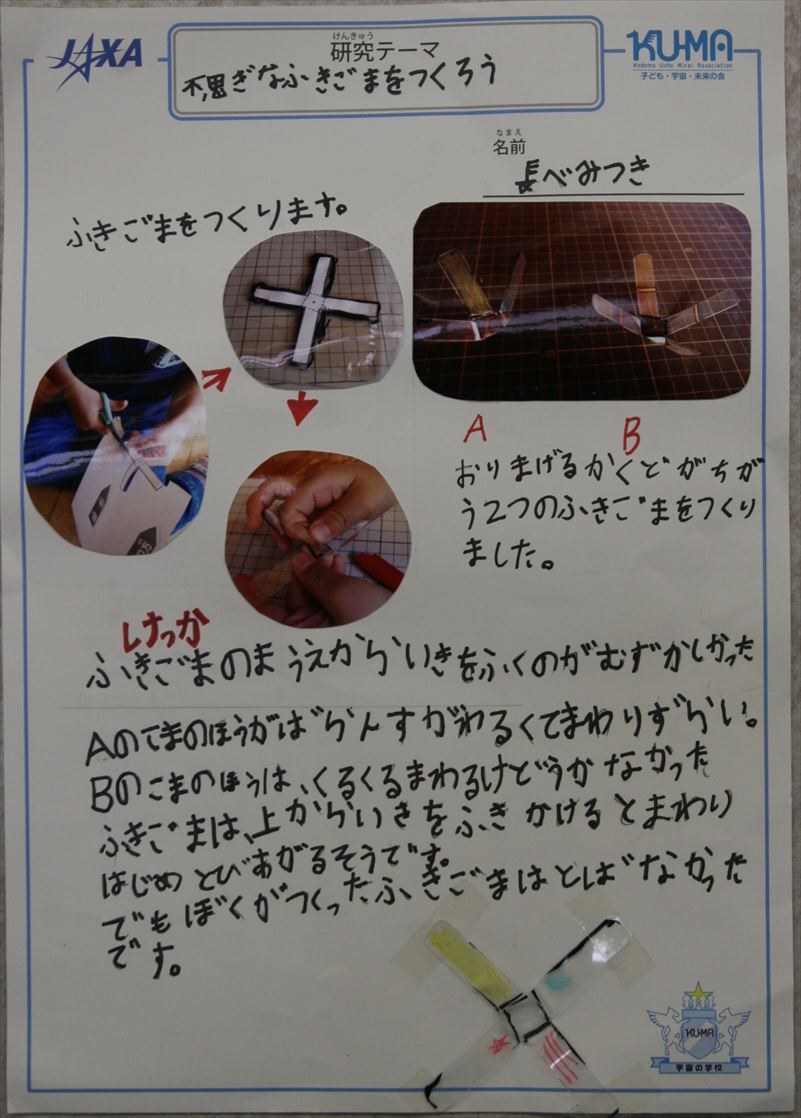 JAXA
けんきゅう
研究テーマ
不思ぎなふきごまをつくろう
KU-MA
Kodomo Uchu Mirai Association
子ども・宇宙・未来の会
なまえ
名前
長べみつき
ふきごまをつくります。
A
B
おりまげるかくどがちが
う2つのふきごまをつくり
ました。
けっか
ふきごまのまうえからいきをふくのがむずかしかった
Aのこまのほうがばらんすがわるくてまわりずらい。
Bのこまのほうは、くるくるまわるけどうかなかった
ふきごまは、上からいきをふきかけるとまわり
はじめとびあがるそうです。
でもぼくがつくったふきごまはとばなかった
です。
KUMA
宇宙の学校